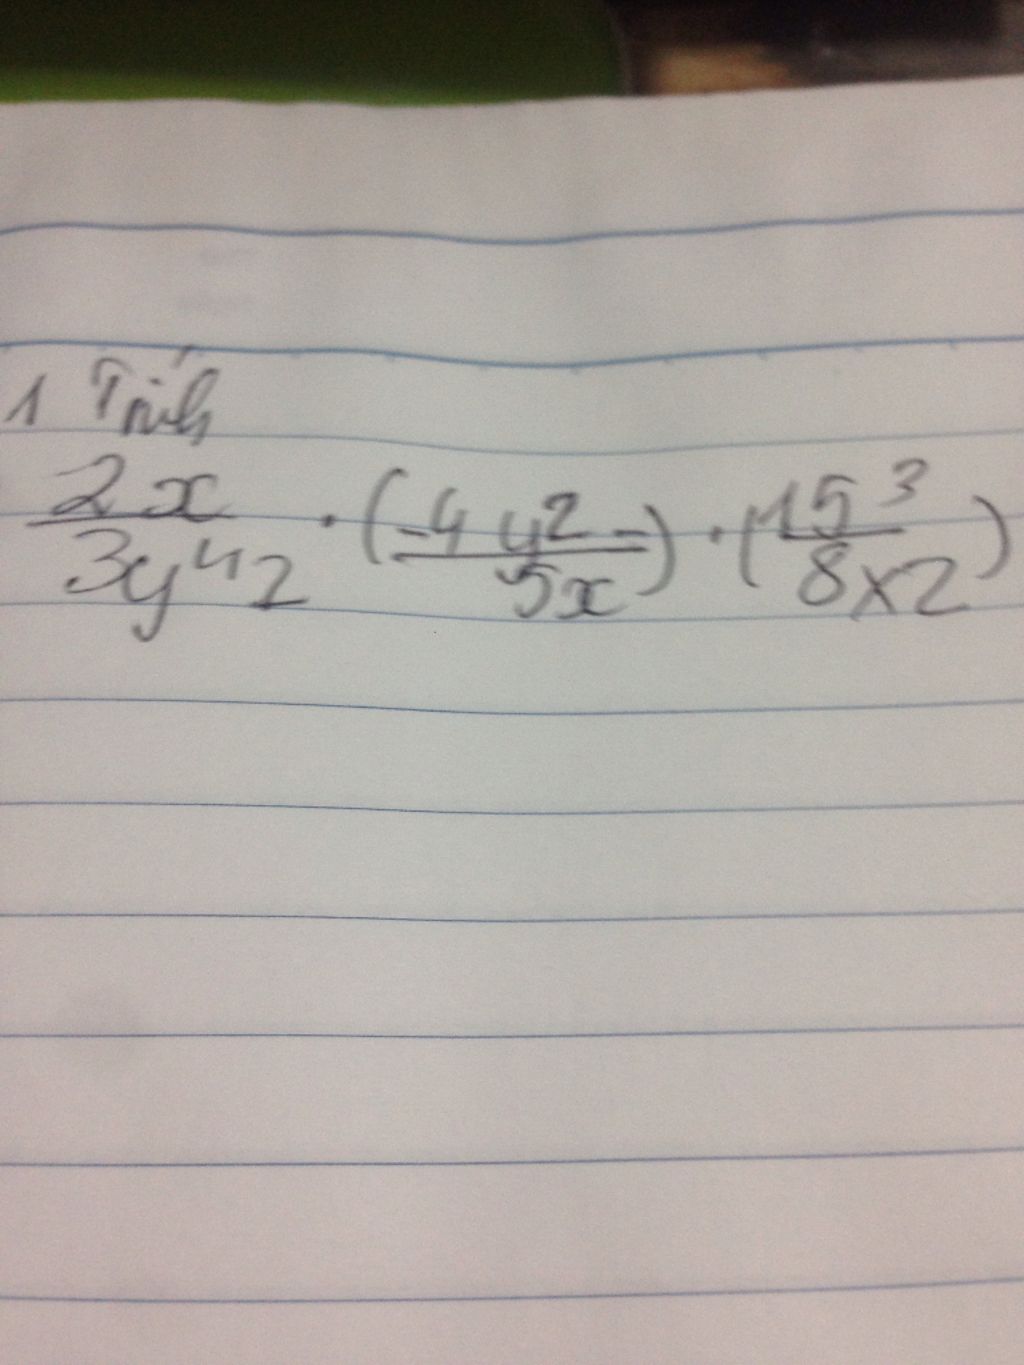 1 Tính
2x / 3y⁴z · (-4y² / 5x) · (15³ / 8x2)